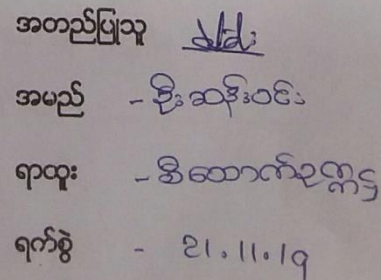 အတည်ပြုသူ
အမည် - ဦးဆန်းဝင်း
ရာထူး - ဒီထောက်ဥက္ကဋ္ဌ
ရက်စွဲ - ၃၁.၁၁.၁၇